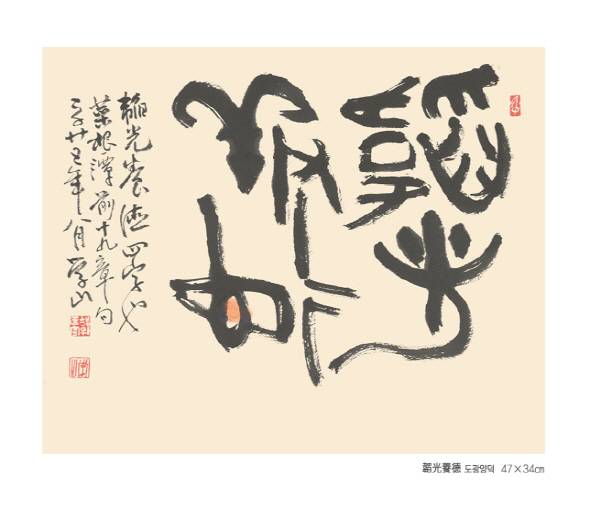 韜光
養德
韜光養德四字也
菜根潭前十九章句
年八月
韜光養德 도광양덕 47×34㎝